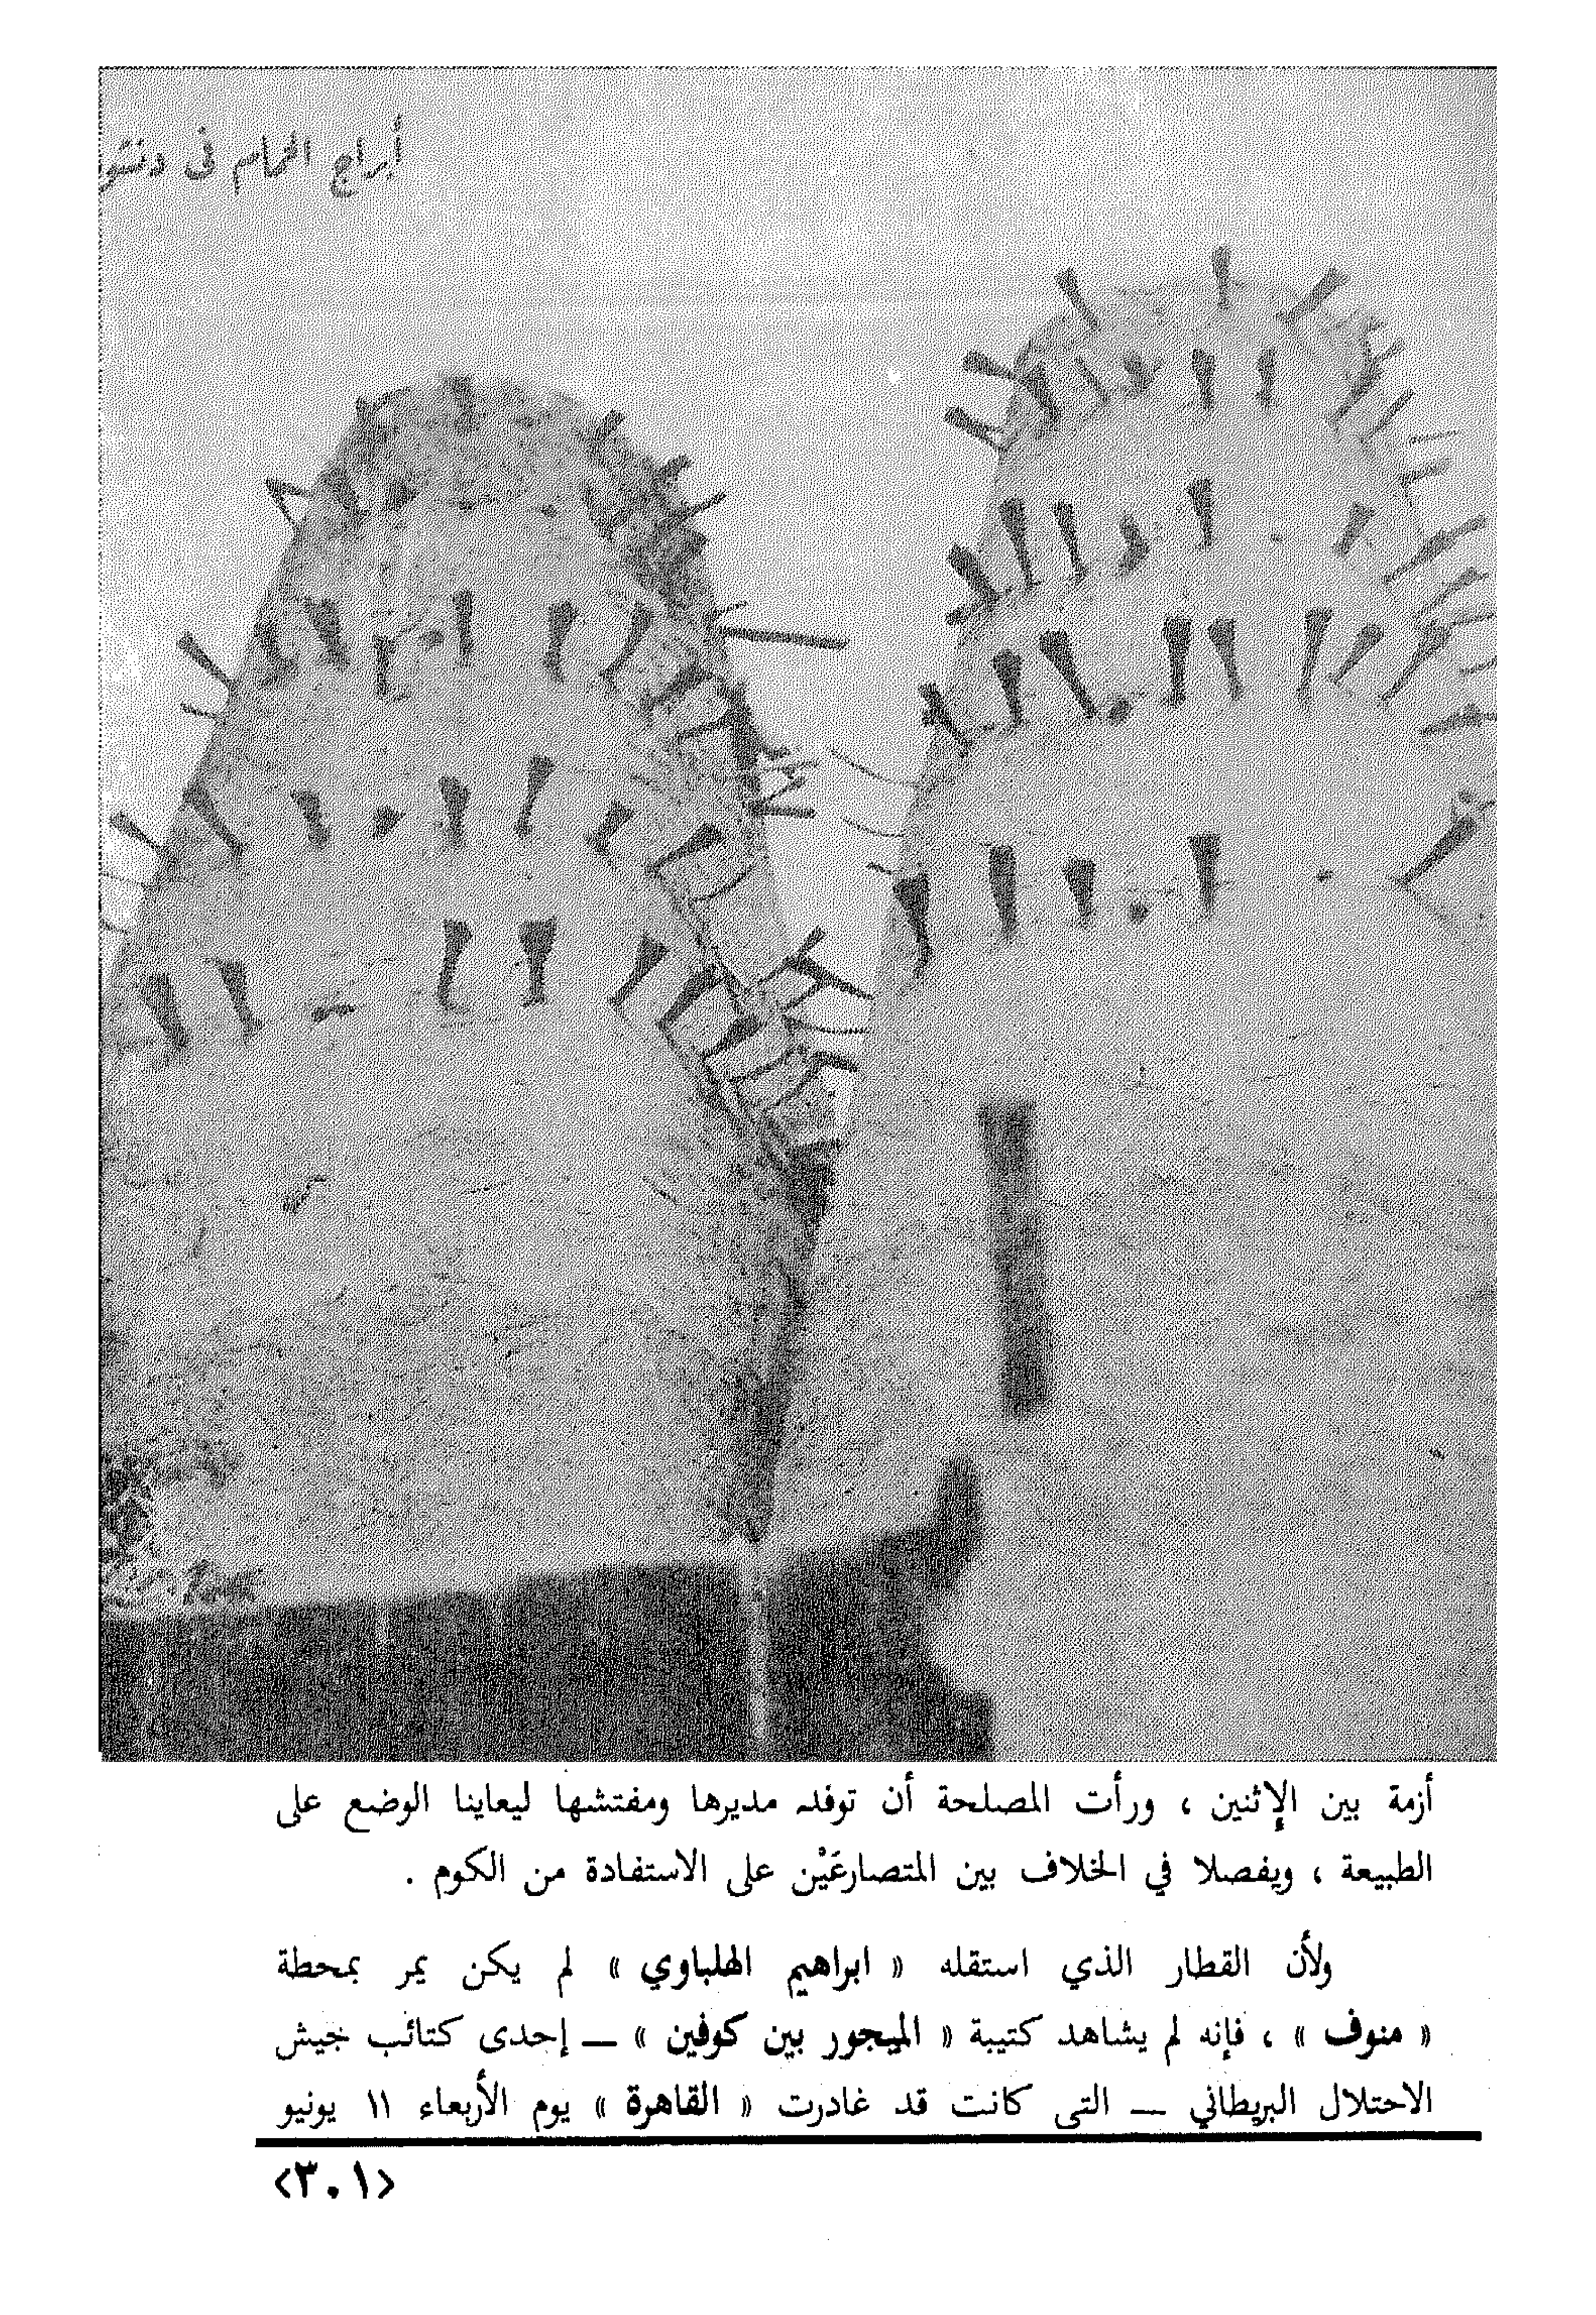 أبراج الحمام فى
أزمة بين الإثنين ، ورأت المصلحة أن توفد مديرها ومفتشها ليعاينا الوضع على
الطبيعة ، ويفصلا في الخلاف بين المتصارعَيْن على الاستفادة من الكوم .
ولأن القطار الذي استقله « ابراهيم الهلباوي » لم يكن يمر بمحطة
« منوف » ، فإنه لم يشاهد كتيبة « الميجور بين كوفين » — إحدى كتائب جيش
الاحتلال البريطاني — التي كانت قد غادرت « القاهرة » يوم الأربعاء ١١ يونيو
<٣٠١>